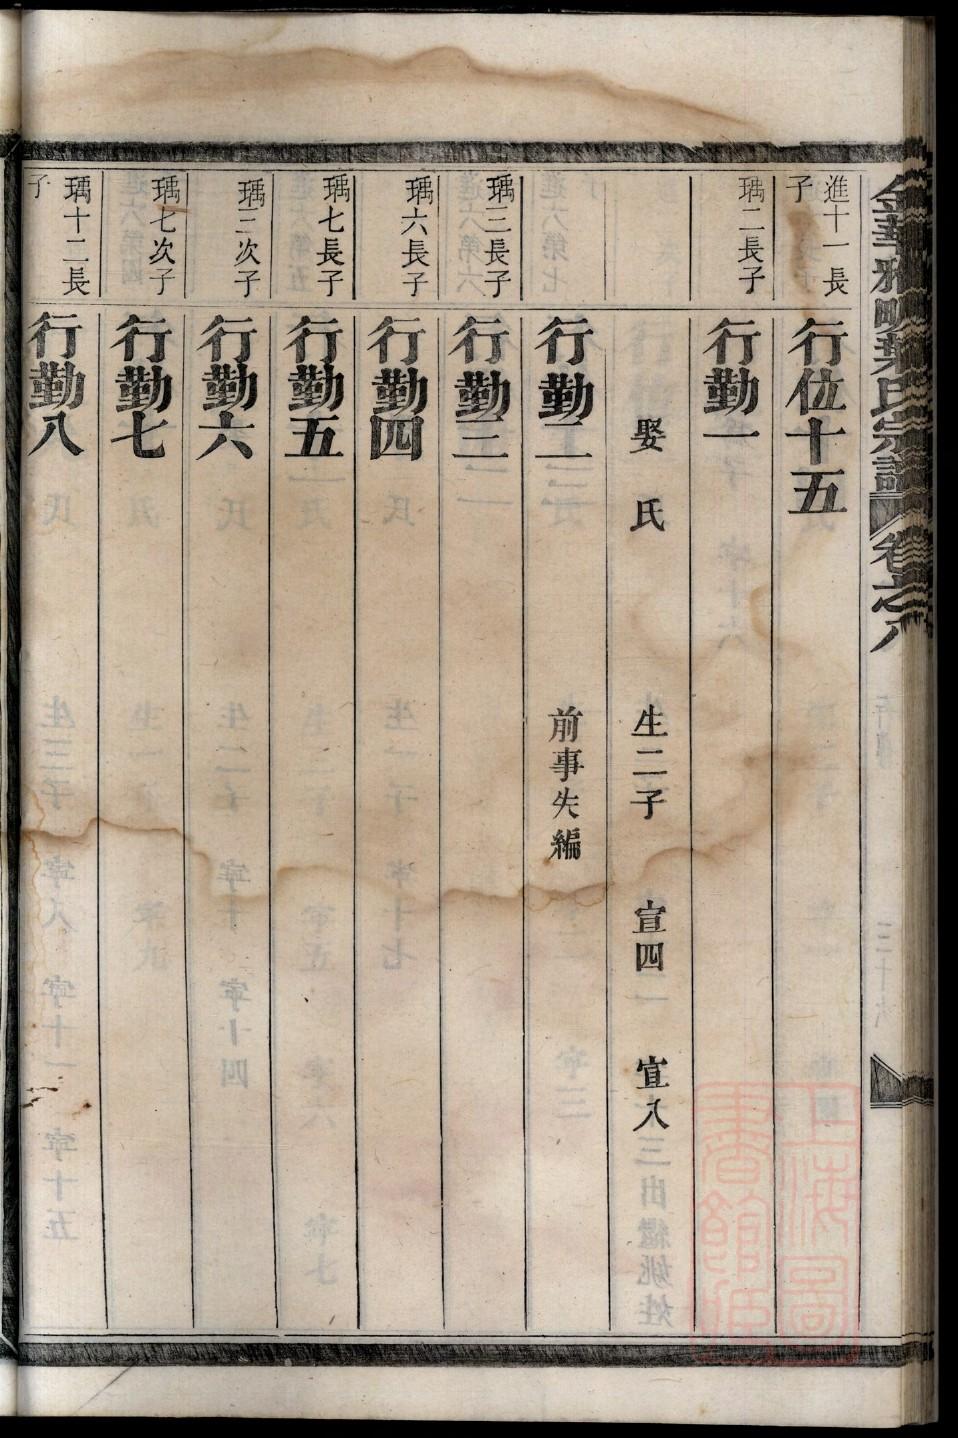 金華雅畈葉氏宗譜 卷之八
進十一長子
行位十五
瑀二長子
行勤一
娶 氏 生二子 宣四 宣八
行勤二 前事失編
瑀三長子
行勤三
瑀六長子
行勤四
瑀七長子
行勤五
瑀三次子
行勤六
瑀七次子
行勤七
瑀十二長子
行勤八
上海圖書館藏